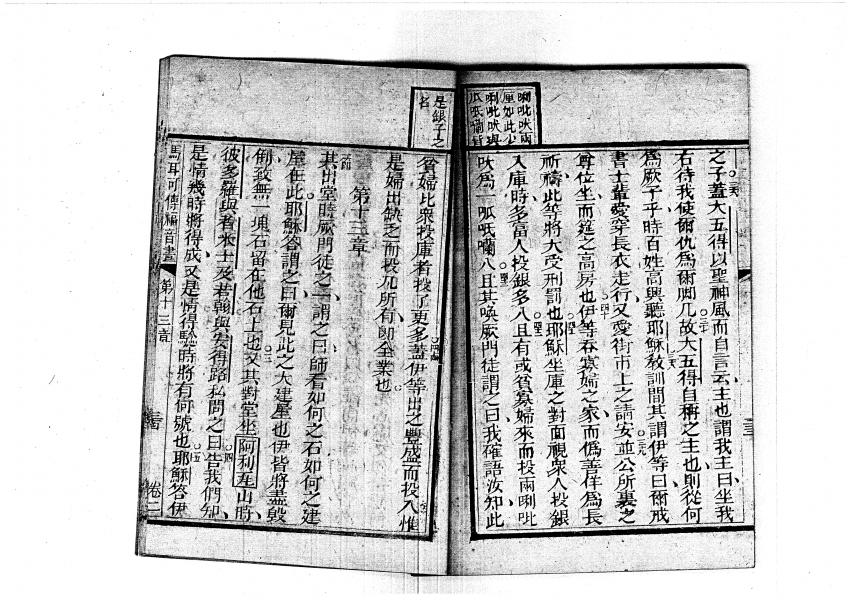 唎吡吠兩
厘如此少
唎吡吠與
之子蓋大五得以聖神風而自言云主也謂我主曰坐我
右待我使爾仇為爾脚几故大五得自稱之主也則從何
為厥子乎時百姓高興聽耶穌教訓間其謂伊等曰爾戒
書士輩愛穿長衣走行又愛街市上之請安並公所裏之
尊位坐而筵之高房也伊等吞寡婦之家而偽善佯為長
祈禱此等將大受刑罰也耶穌坐庫之對面視衆人投銀
入庫時多富人投銀多入且有或貧寡婦來而投兩唎吡
吠為一呱呧嚪入且其喚厥門徒謂之曰我確語汝知此
是銀子之
名
貧婦比衆投庫者投了更多蓋伊等出之豐盛而投入惟
是婦出缺乏而投凡所有即全業也
第十三章
其出堂時厥門徒之一謂之曰師看如何之石如何之建
屋在此耶穌答謂之曰爾見此之大建屋也伊皆將盡毀
倒致無一塊石留在他石上也又其對堂坐阿利瓦山時
彼多羅與者米士及若翰與安得路私問之曰告我們知
是情幾時將得成又是情得驗時將有何號也耶穌答伊
馬耳可傳福音書
第十三章
卷二